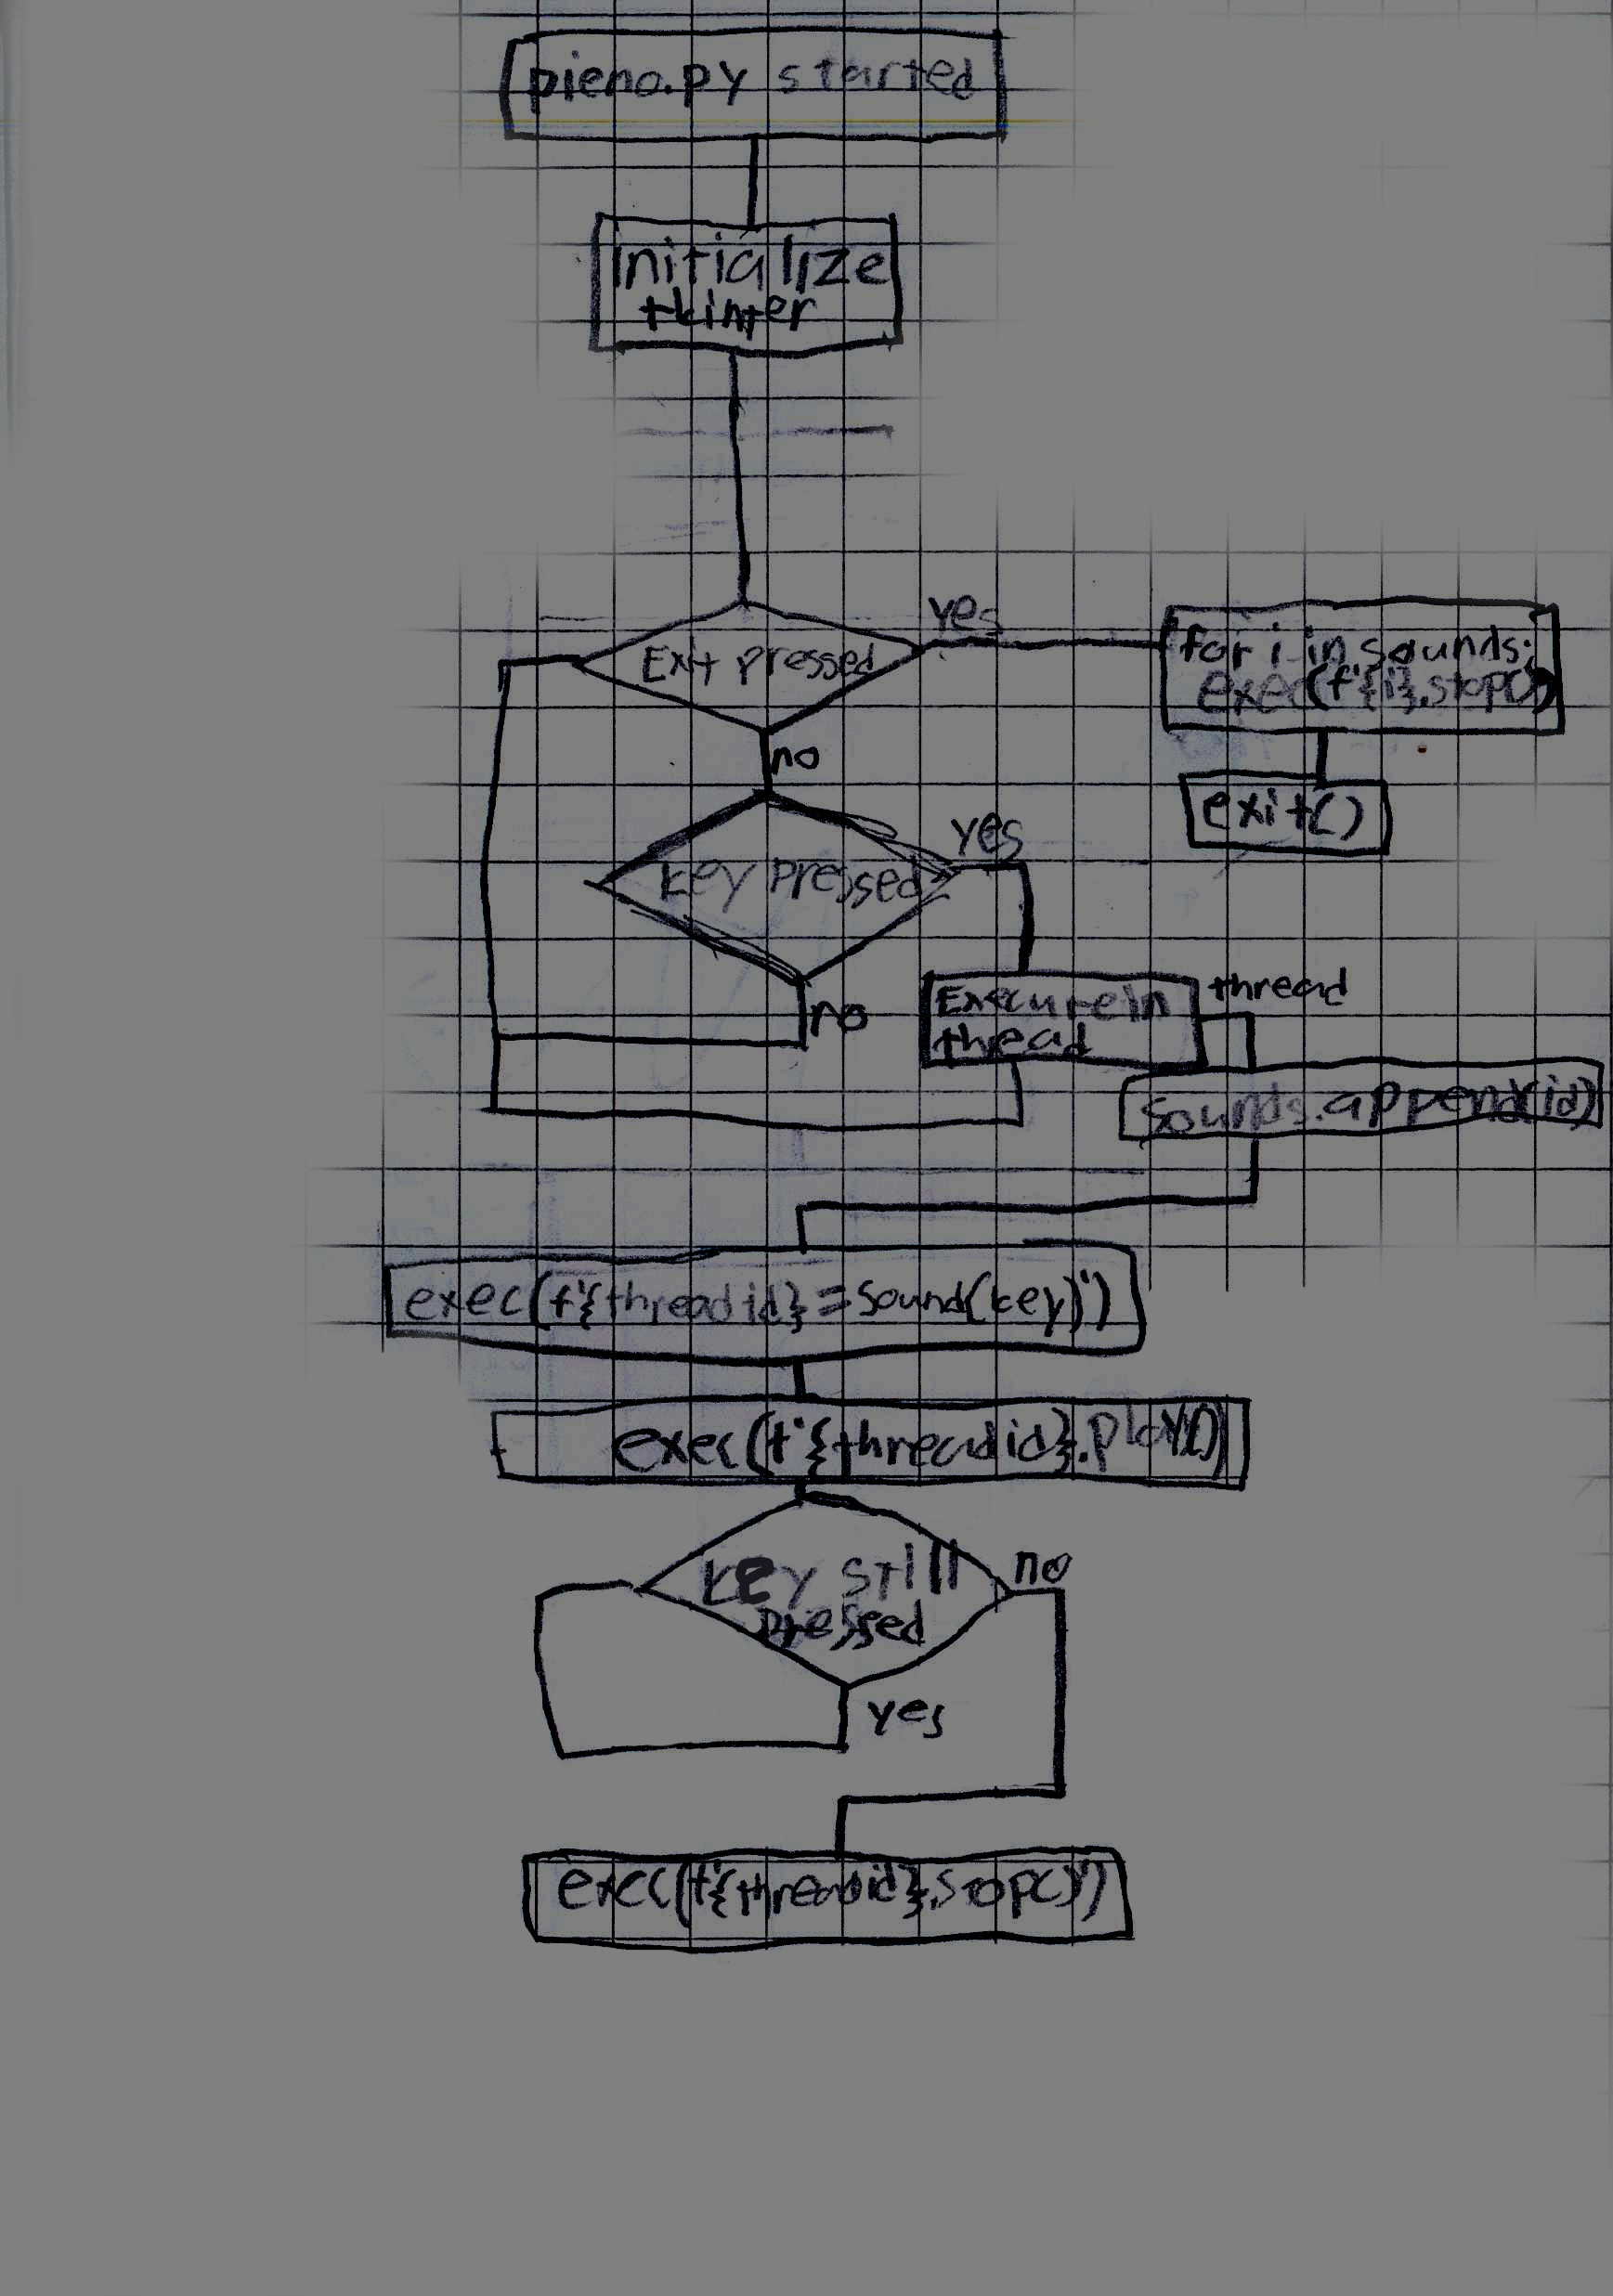 pieno.py started
Initialize
tkinter
yes
Exit pressed
for i in sounds:
exec(f'{i}.stop()')
no
exit()
yes
key pressed
thread
Execute in
thead
no
sounds.append(id)
exec(f'{thread id}=Sound(key)')
exec(f'{thread id}.play()')
key still
pressed
no
yes
exec(f'{thread id}.stop()')